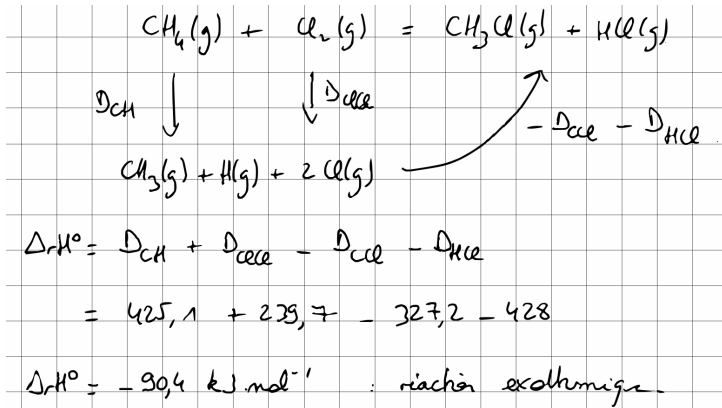 CH₄(g) + Cl₂(g) = CH₃Cl(g) + HCl(g)
D_CH D_ClCl
- D_CCl - D_HCl
CH₃(g) + H(g) + 2 Cl(g)
ΔrH° = D_CH + D_ClCl - D_CCl - D_HCl
= 425,1 + 239,7 - 327,2 - 428
ΔrH° = - 90,4 kJ.mol⁻¹ : réaction exothermique.